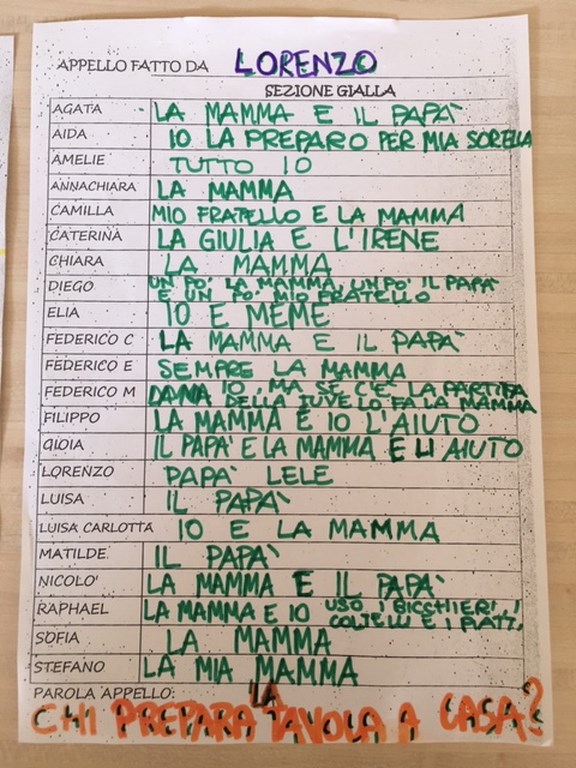 APPELLO FATTO DA LORENZO
SEZIONE GIALLA
AGATA LA MAMMA E IL PAPA'
AIDA IO LA PREPARO PER MIA SORELLA
AMELIE TUTTO IO
ANNACHIARA LA MAMMA
CAMILLA MIO FRATELLO E LA MAMMA
CATERINA LA GIULIA E L'IRENE
CHIARA LA MAMMA
DIEGO UN PO' LA MAMMA, UN PO' IL PAPA'
E UN PO' MIO FRATELLO
ELIA IO E MEME
FEDERICO C LA MAMMA E IL PAPA'
FEDERICO E SEMPRE LA MAMMA
FEDERICO M IO, MA SE C'E' LA PARTITA
DELLA JUVE LO FA LA MAMMA
FILIPPO LA MAMMA E IO L'AIUTO
GIOIA IL PAPA' E LA MAMMA E LI AIUTO
LORENZO PAPA' LELE
LUISA IL PAPA'
LUISA CARLOTTA IO E LA MAMMA
MATILDE IL PAPA'
NICOLO' LA MAMMA E IL PAPA'
RAPHAEL LA MAMMA E IO USO I BICCHIERI, I
COLTELLI E I PIATTI
SOFIA LA MAMMA
STEFANO LA MIA MAMMA
PAROLA APPELLO:
CHI PREPARA LA TAVOLA A CASA?